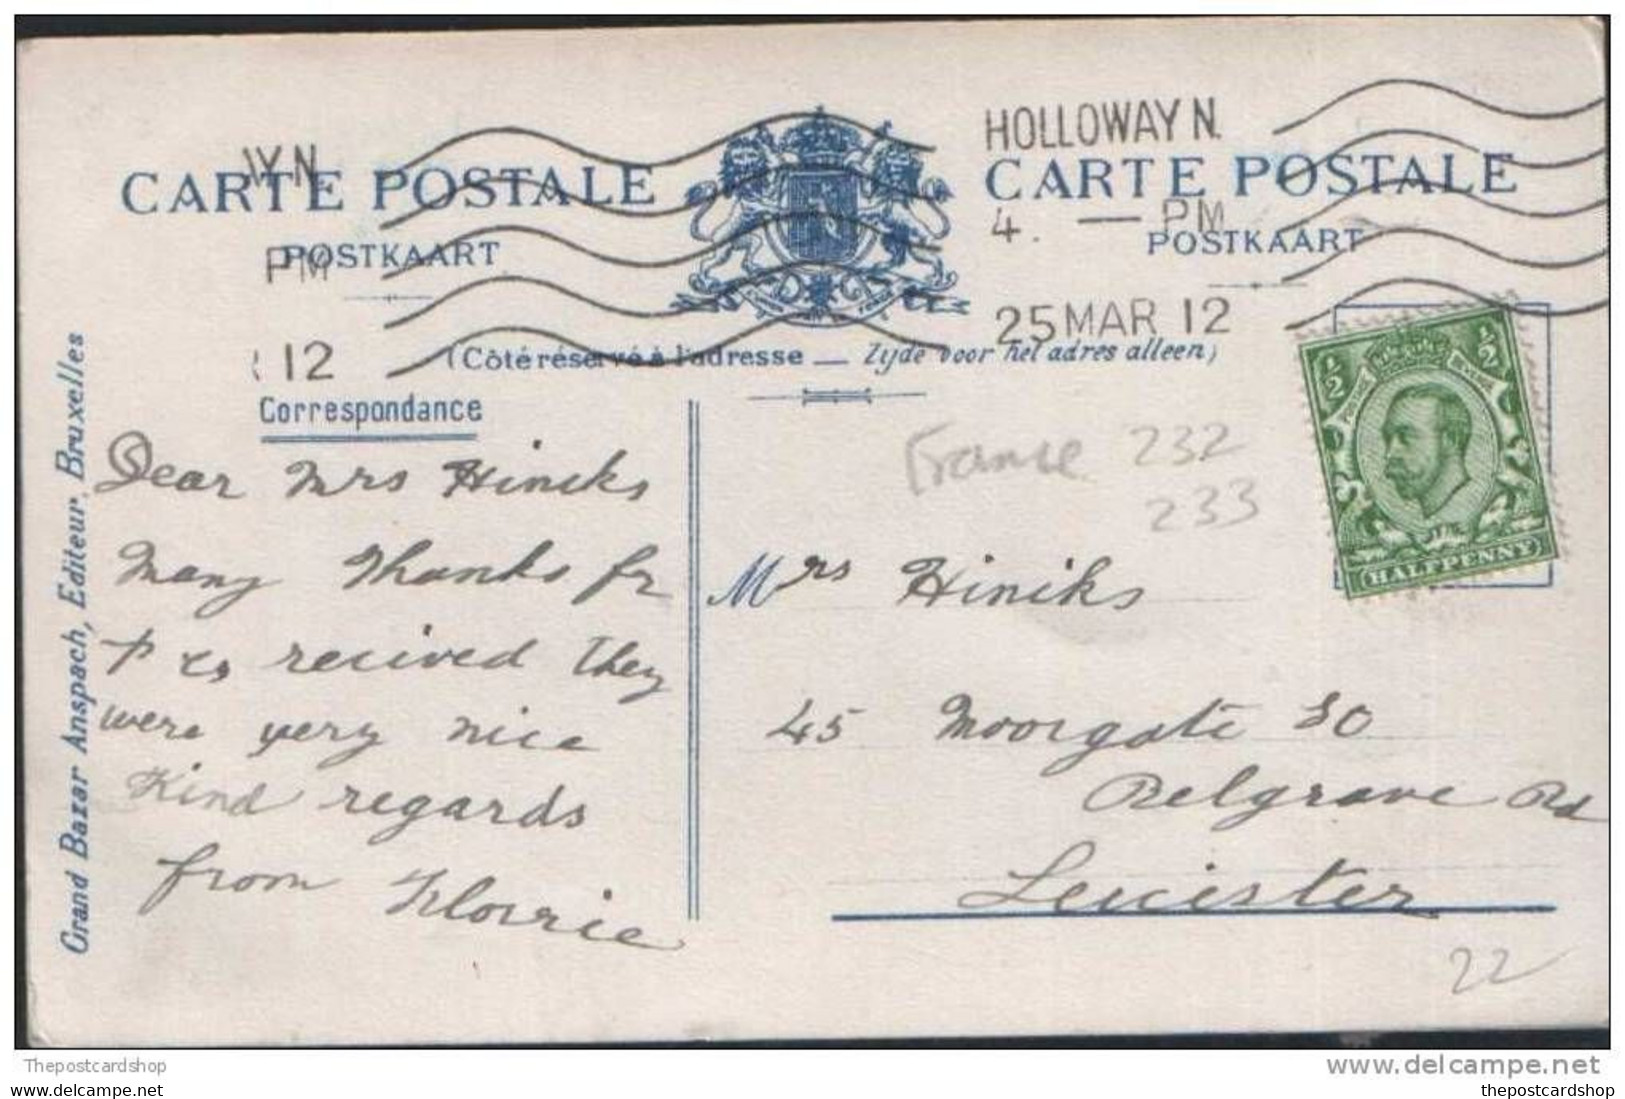 HOLLOWAY N.
CARTE POSTALE
CARTE POSTALE
POSTKAART
4. — PM
POSTKAART
PM
25 MAR 12
12
(Côté réservé à l'adresse — Zijde voor het adres alleen)
Correspondance
Grand Bazar Anspach, Editeur, Bruxelles
Dear Mrs Hincks
Many Thanks for
P Cs recived They
were very nice
Kind regards
from Florrie
France 232
233
Mrs Hiniks
45 Moorgate St
Belgrave Rd
Leicister
22
1/2 1/2
POSTAGE REVENUE
HALFPENNY
Thepostcardshop
www.delcampe.net
thepostcardshop
thepostcardshop